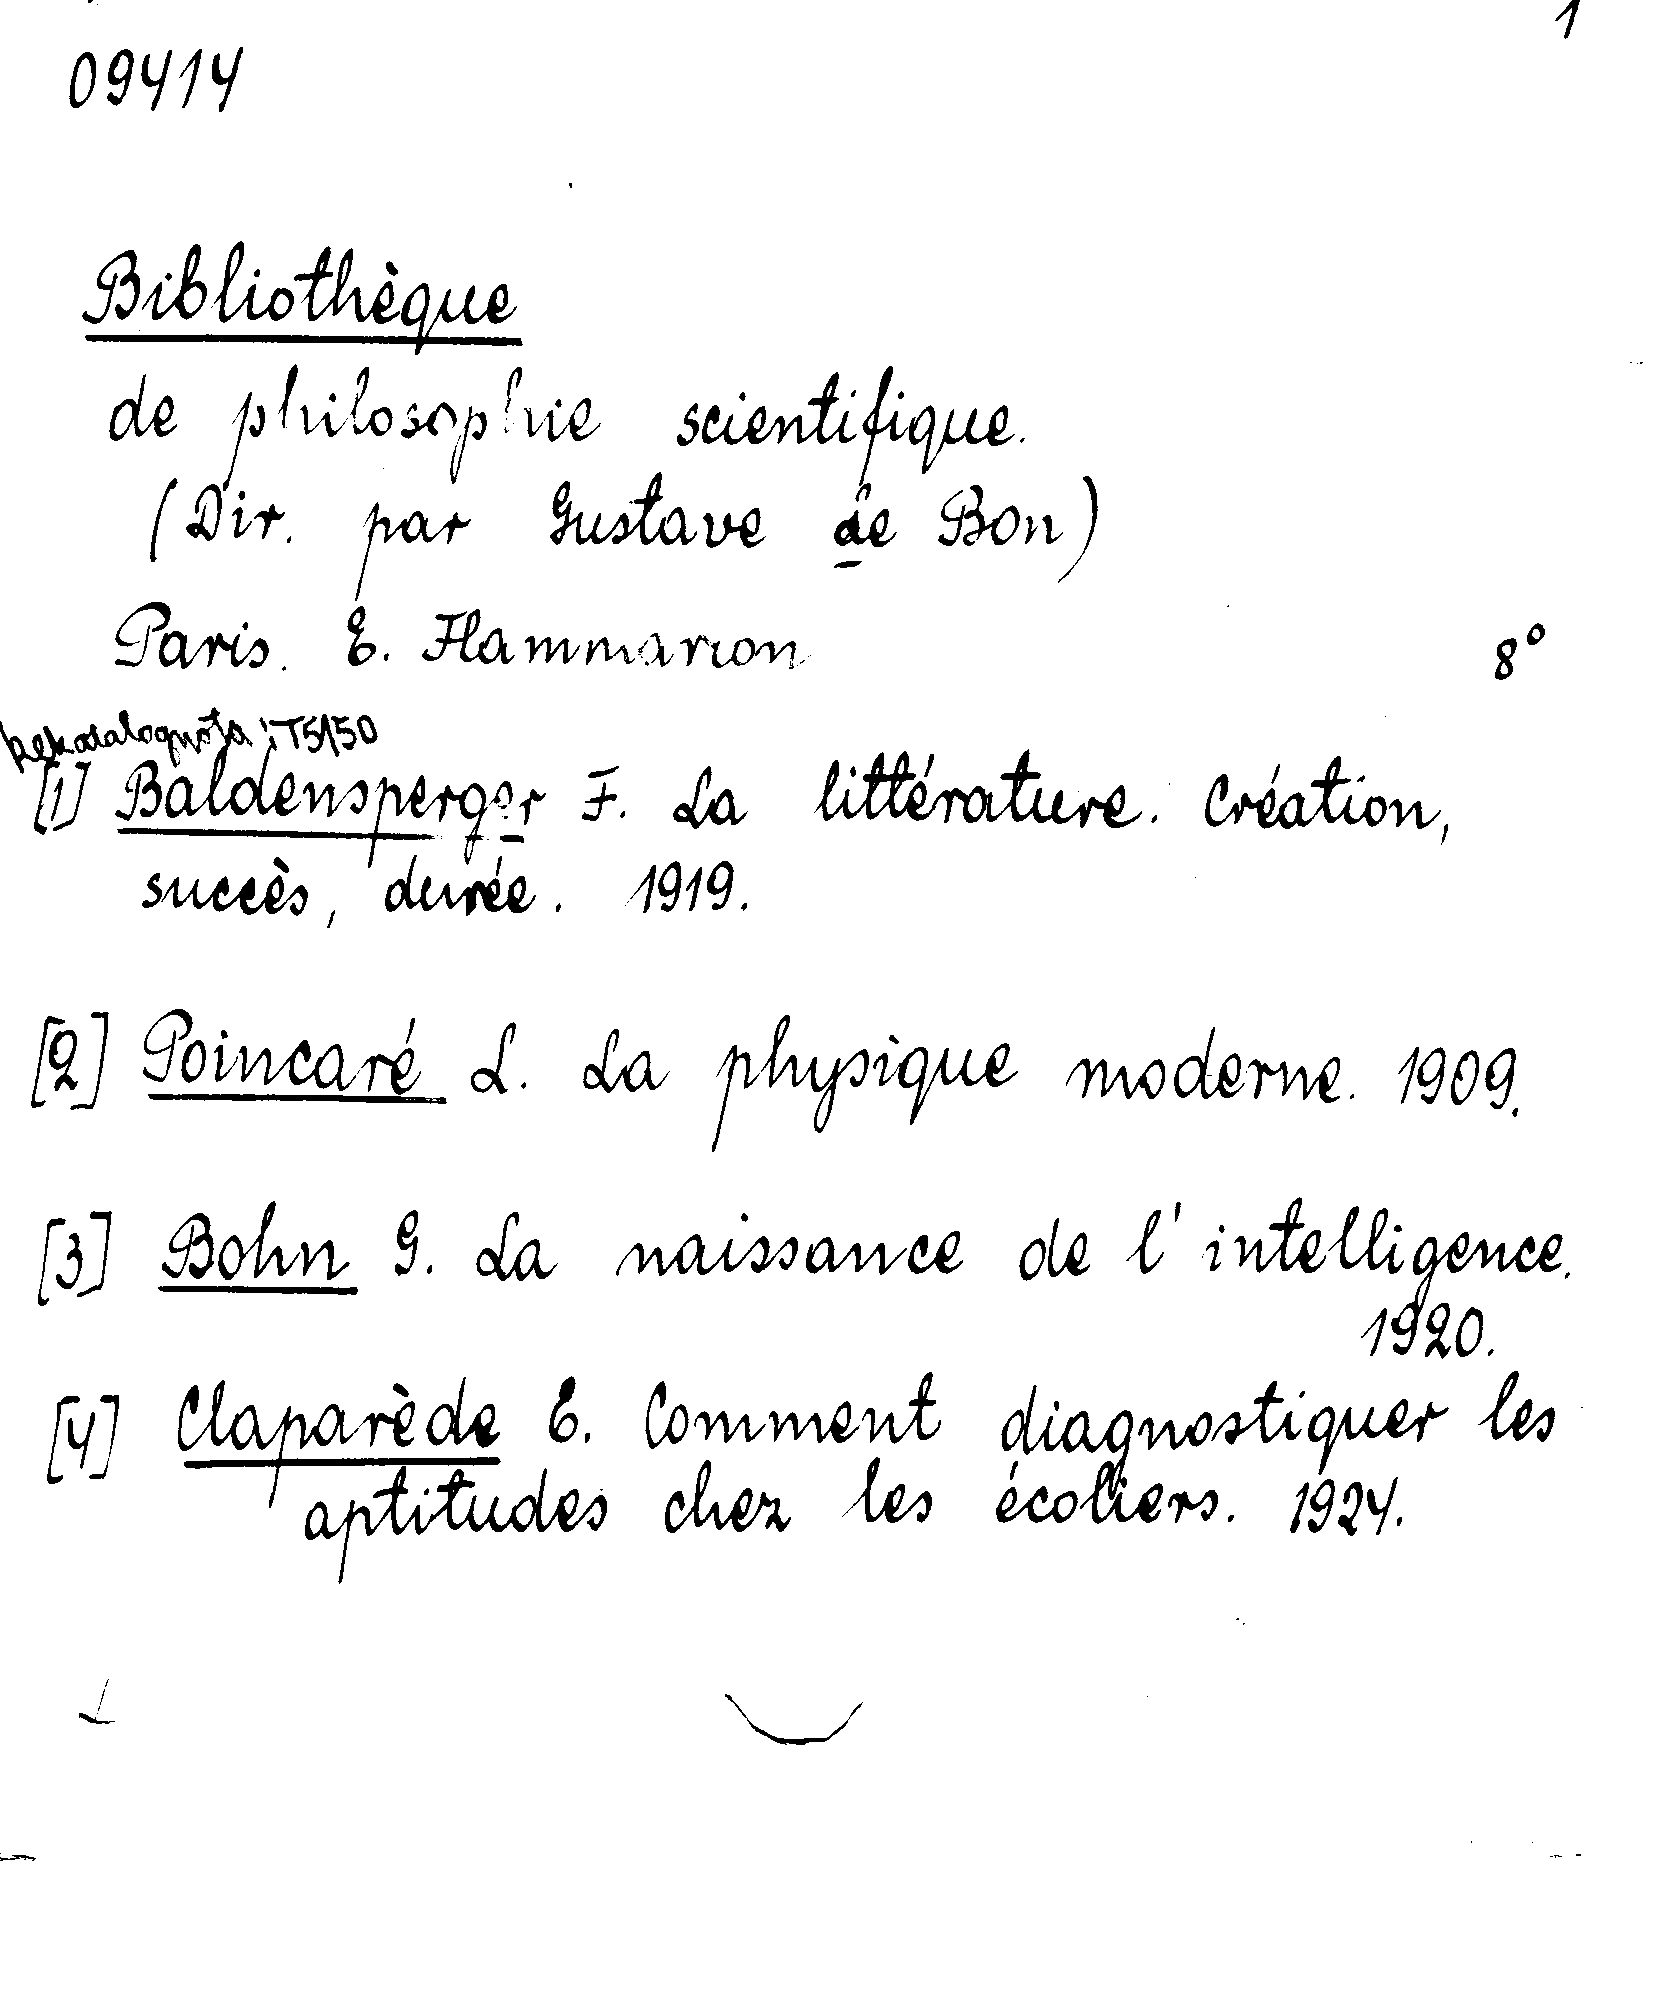 1
09414
Bibliothèque
de philosophie scientifique.
(Dir. par Gustave de Bon)
Paris. E. Flammarion 8°
rekatalognota: T5150
[1] Baldensperger F. La littérature. Création,
succès, durée. 1919.
[2] Poincaré L. La physique moderne. 1909.
[3] Bohn G. La naissance de l'intelligence.
1920.
[4] Claparède E. Comment diagnostiquer les
aptitudes chez les écoliers. 1924.